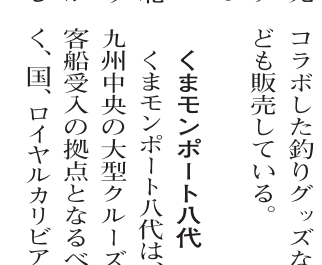 コラボした釣りグッズな
ども販売している。
くまモンポート八代
くまモンポート八代は、
九州中央の大型クルーズ
客船受入の拠点となるべ
く、国、ロイヤルカリビア